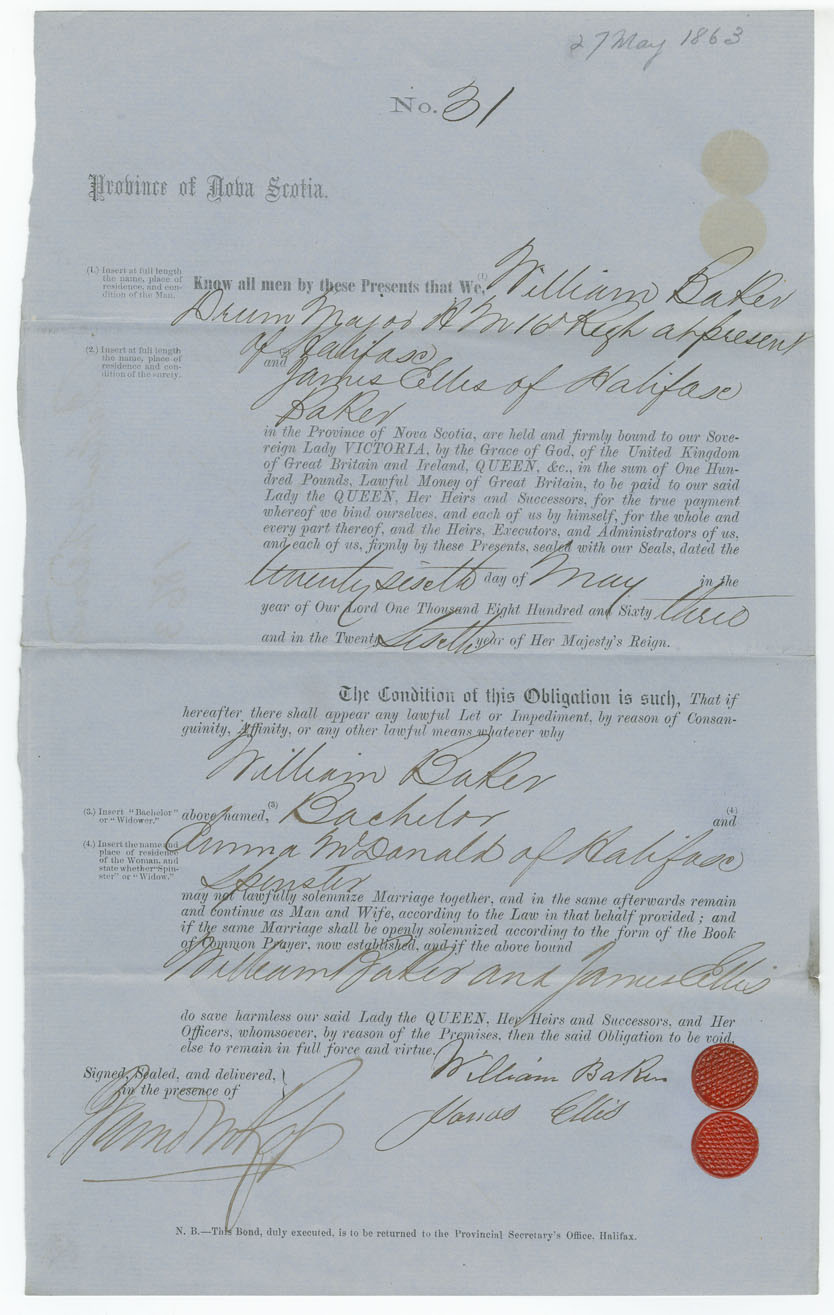 27 May 1863
No. 31
Province of Nova Scotia.
(1.) Insert at full length
the name, place of
residence, and con-
dition of the Man.
Know all men by these Presents that We, (1) William Baker
Drum Major H M 16 Regt at present
of Halifax
(2.) Insert at full length
the name, place of
residence and con-
dition of the surety.
and James Ellis of Halifax
Baker
in the Province of Nova Scotia, are held and firmly bound to our Sove-
reign Lady VICTORIA, by the Grace of God, of the United Kingdom
of Great Britain and Ireland, QUEEN, &c., in the sum of One Hun-
dred Pounds, Lawful Money of Great Britain, to be paid to our said
Lady the QUEEN, Her Heirs and Successors, for the true payment
whereof we bind ourselves, and each of us by himself, for the whole and
every part thereof, and the Heirs, Executors, and Administrators of us,
and each of us, firmly by these Presents, sealed with our Seals, dated the
twenty sixth day of May in the
year of Our Lord One Thousand Eight Hundred and Sixty three
and in the Twenty Sixth year of Her Majesty's Reign.
The Condition of this Obligation is such, That if
hereafter there shall appear any lawful Let or Impediment, by reason of Consan-
guinity, Affinity, or any other lawful means whatever why
William Baker
(3.) Insert "Bachelor"
or "Widower."
above named, (3) Bachelor and (4)
(4.) Insert the name and
place of residence
of the Woman, and
state whether "Spin-
ster" or "Widow."
Emma McDonald of Halifax
Spinster
may not lawfully solemnize Marriage together, and in the same afterwards remain
and continue as Man and Wife, according to the Law in that behalf provided; and
if the same Marriage shall be openly solemnized according to the form of the Book
of Common Prayer, now established, and if the above bound
William Baker and James Ellis
do save harmless our said Lady the QUEEN, Her Heirs and Successors, and Her
Officers, whomsoever, by reason of the Premises, then the said Obligation to be void,
else to remain in full force and virtue.
Signed, Sealed, and delivered,
in the presence of
William Baker
James Ellis
N. B.—This Bond, duly executed, is to be returned to the Provincial Secretary's Office, Halifax.